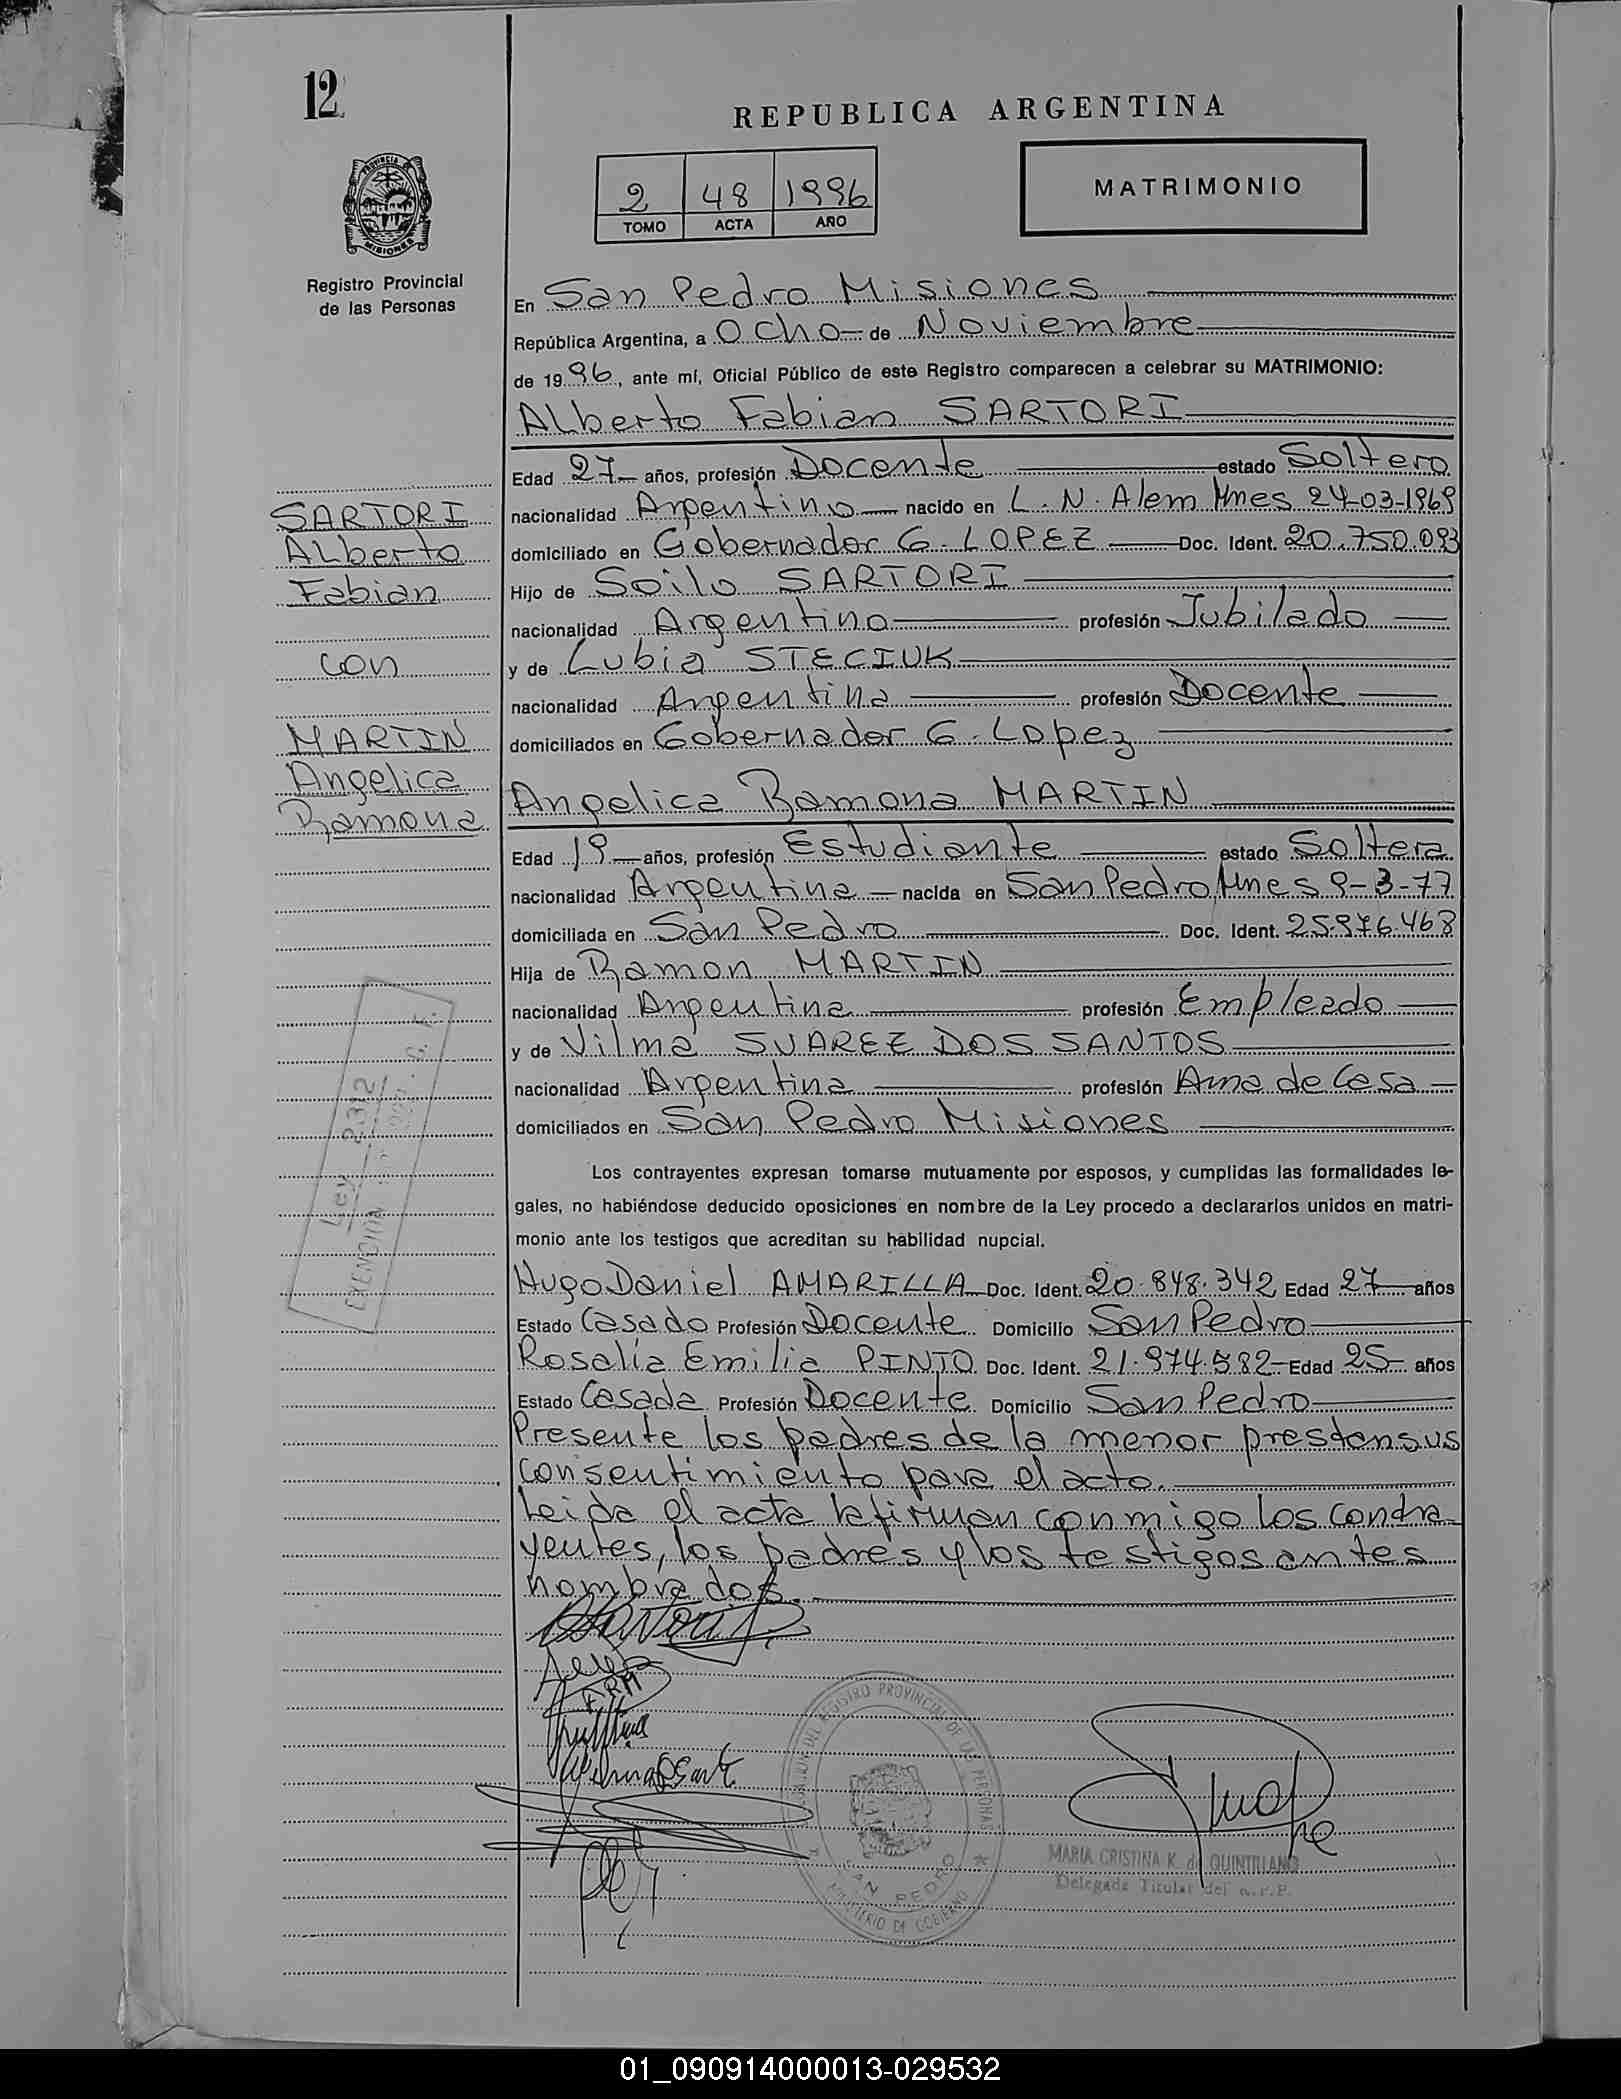 12
REPUBLICA ARGENTINA
PROVINCIA
MISIONES
2 48 1996
TOMO ACTA AÑO
MATRIMONIO
Registro Provincial
de las Personas
En San Pedro Misiones
República Argentina, a Ocho de Noviembre
de 1996, ante mí, Oficial Público de este Registro comparecen a celebrar su MATRIMONIO:
Alberto Fabian SARTORI
Edad 27 años, profesión Docente estado Soltero
nacionalidad Argentino nacido en L.N. Alem Mnes 24-03-1969
domiciliado en Gobernador G. LOPEZ Doc. Ident. 20.750.093
Hijo de Soilo SARTORI
nacionalidad Argentino profesión Jubilado
y de Lubia STECIUK
nacionalidad Argentina profesión Docente
domiciliados en Gobernador G. Lopez
SARTORI
Alberto
Fabian
con
MARTIN
Angelica
Ramona
Angelica Ramona MARTIN
Edad 19 años, profesión Estudiante estado Soltera
nacionalidad Argentina nacida en San Pedro, Mnes 9-3-77
domiciliada en San Pedro Doc. Ident. 25.976.468
Hija de Ramon MARTIN
nacionalidad Argentina profesión Empleado
y de Vilma SUAREZ DOS SANTOS
nacionalidad Argentina profesión Ama de Casa
domiciliados en San Pedro Misiones
Ley 2312
Los contrayentes expresan tomarse mutuamente por esposos, y cumplidas las formalidades le-
gales, no habiéndose deducido oposiciones en nombre de la Ley procedo a declararlos unidos en matri-
monio ante los testigos que acreditan su habilidad nupcial.
Hugo Daniel AMARILLA Doc. Ident. 20.848.342 Edad 27 años
Estado Casado Profesión Docente Domicilio San Pedro
Rosalía Emilia PINTO Doc. Ident. 21.974.582 Edad 25 años
Estado Casada Profesión Docente Domicilio San Pedro
Presente los padres de la menor prestan sus
consentimiento para el acto.
Leida el acta la firman conmigo los contra-
yentes, los padres y los testigos antes
nombrados.
REGISTRO PROVINCIAL DE LAS PERSONAS
SAN PEDRO
MINISTERIO DE GOBIERNO
MARIA CRISTINA K. de QUINTILLANO
Delegada Titular del R.P.P.
01_090914000013-029532